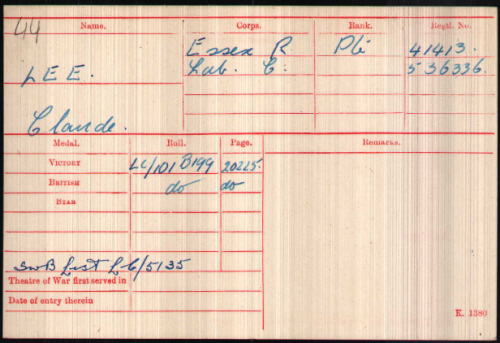 44
Name. Corps. Rank. Regtl. No.
Essex R Pte 41413.
LEE. Lab. C. 536336.
Claude.
Medal. Roll. Page. Remarks.
VICTORY LC/101B199 20225.
BRITISH do do
STAR
SWB List LC/5135
Theatre of War first served in
Date of entry therein
K. 1380